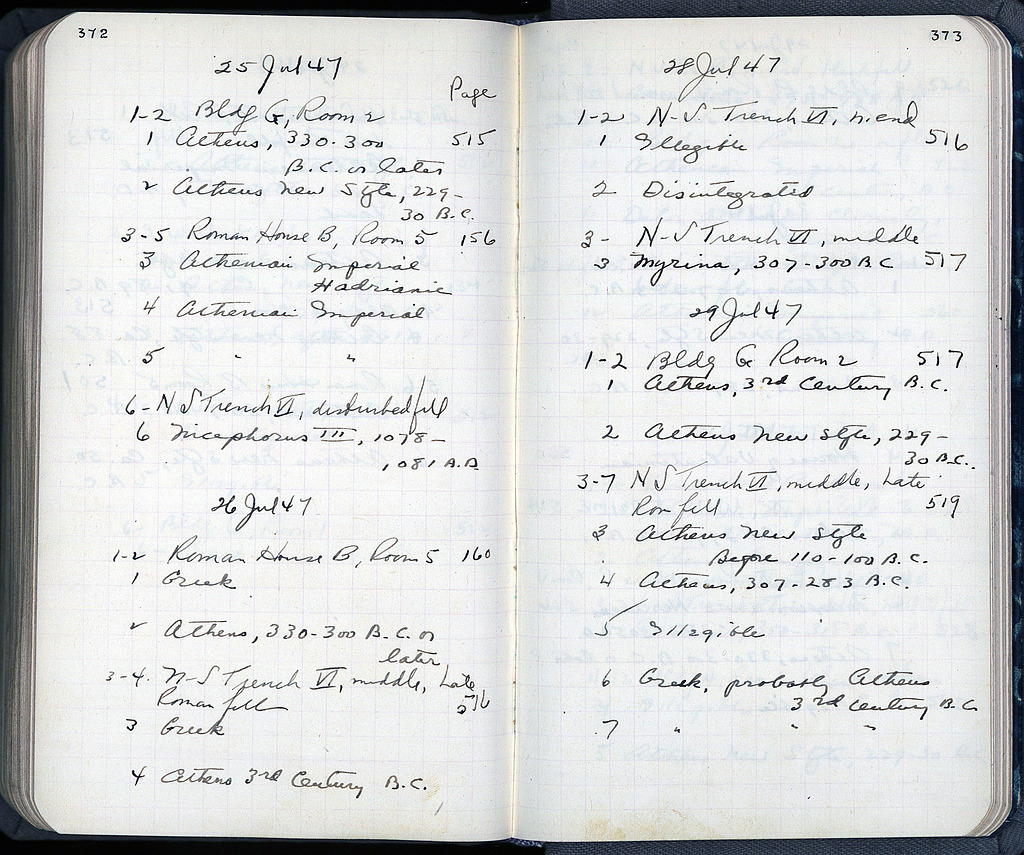 372
25 Jul 47
Page
1-2 Bldg G, Room 2
1 Athens, 330-300 515
B.C. or later
2 Athens New Style, 229-
30 B.C.
3-5 Roman House B, Room 5 156
3 Athenian Imperial
Hadrianic
4 Athenian Imperial
5 " "
6- N S Trench VI, disturbed fill
6 Nicephorus III, 1078-
1081 A.D.
26 Jul 47
1-2 Roman House B, Room 5 160
1 Greek
2 Athens, 330-300 B.C. or
later
3-4. N-S Trench VI, middle, Late
Roman fill 516
3 Greek
4 Athens 3rd Century B.C.
373
28 Jul 47
1-2 N-S Trench VI, n. end
1 Illegible 516
2 Disintegrated
3- N-S Trench VI, middle
3 Myrina, 307-300 B C 517
29 Jul 47
1-2 Bldg G Room 2 517
1 Athens, 3rd Century B.C.
2 Athens New Style, 229-
30 B.C.
3-7 N S Trench VI, middle, Late
Rom fill 519
3 Athens New Style
Before 110-100 B.C.
4 Athens, 307-283 B.C.
5 Illegible
6 Greek, probably Athens
3rd Century B.C.
7 " " "